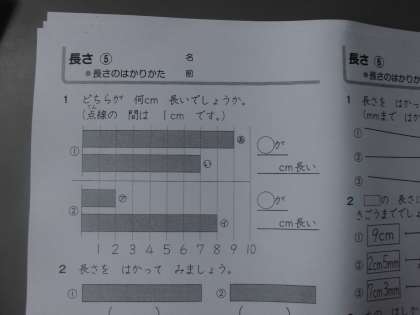 長さ ⑤
名前
●長さのはかりかた
1 どちらが 何cm 長いでしょうか。
(点線の 間は 1cm です。)
てん
① あ
い
○が
cm長い
② ㋐
㋑
○が
cm長い
1 2 3 4 5 6 7 8 9 10
2 長さを はかって みましょう。
① ②
( ) (
長さ ⑤
●長さのはかりか
1 長さを はかっ
(mmまで はか
①
②
③
2 の 長さ
きごうまででし
① 9cm
② 2cm5mm
③ 7cm3mm